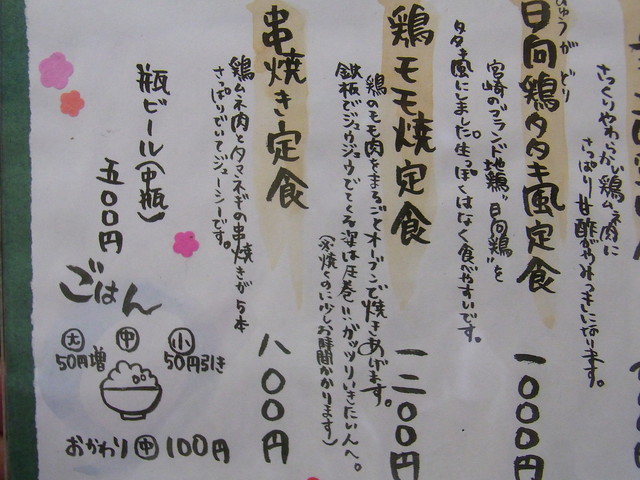 さっくりやわらかい鶏ムネ肉に
さっぱり甘酢がやみつきになります。
ひゅうがどり
日向鶏タタキ風定食
一000円
宮崎のブランド地鶏"日向鶏"を
タタキ風にしました。生っぽくはなく食べやすいです。
鶏モモ焼定食
一二00円
鶏のモモ肉をまるごとオーブンで焼きあげます。
鉄板でジュウジュウでてくる姿は圧巻!!ガッツリいきたい人へ。
(※焼くのに少しお時間かかります)
串焼き定食
八00円
鶏ムネ肉とタマネギの串焼きが5本
さっぱりでいてジューシーです。
瓶ビール(中瓶)
五00円
ごはん
大 中 小
50円増 50円引き
おかわり 中 100円